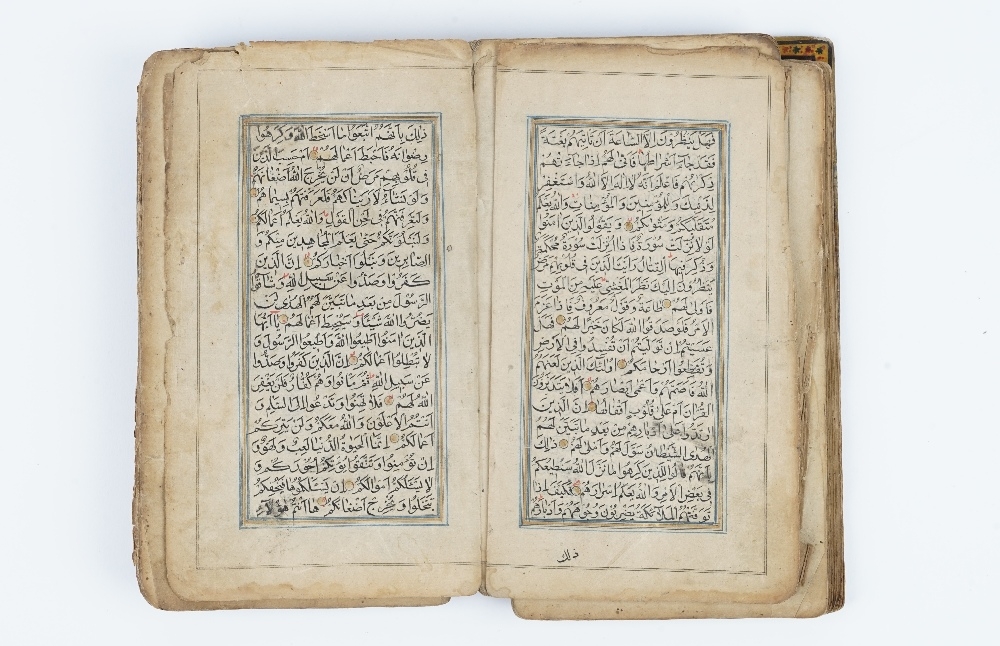 فَهَلْ يَنْظُرُونَ اِلَّا السَّاعَةَ اَنْ تَاْتِيَهُمْ بَغْتَةً
فَقَدْ جَاءَ اَشْرَاطُهَا فَاَنّٰى لَهُمْ اِذَا جَاءَتْهُمْ
ذِكْرٰيهُمْ فَاعْلَمْ اَنَّهُ لَا اِلٰهَ اِلَّا اللّٰهُ وَاسْتَغْفِرْ
لِذَنْبِكَ وَلِلْمُؤْمِنِينَ وَالْمُؤْمِنَاتِ وَاللّٰهُ يَعْلَمُ
مُتَقَلَّبَكُمْ وَمَثْوٰيكُمْ وَيَقُولُ الَّذِينَ اٰمَنُوا
لَوْلَا نُزِّلَتْ سُورَةٌ فَاِذَا اُنْزِلَتْ سُورَةٌ مُحْكَمَةٌ
وَذُكِرَ فِيهَا الْقِتَالُ رَاَيْتَ الَّذِينَ فِى قُلُوبِهِمْ مَرَضٌ
يَنْظُرُونَ اِلَيْكَ نَظَرَ الْمَغْشِىِّ عَلَيْهِ مِنَ الْمَوْتِ
فَاَوْلٰى لَهُمْ طَاعَةٌ وَقَوْلٌ مَعْرُوفٌ فَاِذَا عَزَمَ
الْاَمْرُ فَلَوْ صَدَقُوا اللّٰهَ لَكَانَ خَيْرًا لَهُمْ فَهَلْ
عَسَيْتُمْ اِنْ تَوَلَّيْتُمْ اَنْ تُفْسِدُوا فِى الْاَرْضِ
وَتُقَطِّعُوا اَرْحَامَكُمْ اُولٰئِكَ الَّذِينَ لَعَنَهُمُ
اللّٰهُ فَاَصَمَّهُمْ وَاَعْمٰى اَبْصَارَهُمْ اَفَلَا يَتَدَبَّرُونَ
الْقُرْاٰنَ اَمْ عَلٰى قُلُوبٍ اَقْفَالُهَا اِنَّ الَّذِينَ
ارْتَدُّوا عَلٰى اَدْبَارِهِمْ مِنْ بَعْدِ مَا تَبَيَّنَ لَهُمُ
الْهُدَى الشَّيْطَانُ سَوَّلَ لَهُمْ وَاَمْلٰى لَهُمْ ذٰلِكَ
بِاَنَّهُمْ قَالُوا لِلَّذِينَ كَرِهُوا مَا نَزَّلَ اللّٰهُ سَنُطِيعُكُمْ
فِى بَعْضِ الْاَمْرِ وَاللّٰهُ يَعْلَمُ اِسْرَارَهُمْ فَكَيْفَ اِذَا
تَوَفَّتْهُمُ الْمَلٰئِكَةُ يَضْرِبُونَ وُجُوهَهُمْ وَاَدْبَارَهُمْ
ذلك
ذٰلِكَ بِاَنَّهُمُ اتَّبَعُوا مَا اَسْخَطَ اللّٰهَ وَكَرِهُوا
رِضْوَانَهُ فَاَحْبَطَ اَعْمَالَهُمْ اَمْ حَسِبَ الَّذِينَ
فِى قُلُوبِهِمْ مَرَضٌ اَنْ لَنْ يُخْرِجَ اللّٰهُ اَضْغَانَهُمْ
وَلَوْ نَشَاءُ لَاَرَيْنَاكَهُمْ فَلَعَرَفْتَهُمْ بِسِيمَاهُمْ
وَلَتَعْرِفَنَّهُمْ فِى لَحْنِ الْقَوْلِ وَاللّٰهُ يَعْلَمُ اَعْمَالَكُمْ
وَلَنَبْلُوَنَّكُمْ حَتّٰى نَعْلَمَ الْمُجَاهِدِينَ مِنْكُمْ وَ
الصَّابِرِينَ وَنَبْلُوَا اَخْبَارَكُمْ اِنَّ الَّذِينَ
كَفَرُوا وَصَدُّوا عَنْ سَبِيلِ اللّٰهِ وَشَاقُّوا
الرَّسُولَ مِنْ بَعْدِ مَا تَبَيَّنَ لَهُمُ الْهُدٰى لَنْ
يَضُرُّوا اللّٰهَ شَيْئًا وَسَيُحْبِطُ اَعْمَالَهُمْ يَا اَيُّهَا
الَّذِينَ اٰمَنُوا اَطِيعُوا اللّٰهَ وَاَطِيعُوا الرَّسُولَ وَ
لَا تُبْطِلُوا اَعْمَالَكُمْ اِنَّ الَّذِينَ كَفَرُوا وَصَدُّوا
عَنْ سَبِيلِ اللّٰهِ ثُمَّ مَاتُوا وَهُمْ كُفَّارٌ فَلَنْ يَغْفِرَ
اللّٰهُ لَهُمْ فَلَا تَهِنُوا وَتَدْعُوا اِلَى السَّلْمِ وَ
اَنْتُمُ الْاَعْلَوْنَ وَاللّٰهُ مَعَكُمْ وَلَنْ يَتِرَكُمْ
اَعْمَالَكُمْ اِنَّمَا الْحَيٰوةُ الدُّنْيَا لَعِبٌ وَلَهْوٌ وَ
اِنْ تُؤْمِنُوا وَتَتَّقُوا يُؤْتِكُمْ اُجُورَكُمْ وَ
لَا يَسْئَلْكُمْ اَمْوَالَكُمْ اِنْ يَسْئَلْكُمُوهَا فَيُحْفِكُمْ
تَبْخَلُوا وَيُخْرِجْ اَضْغَانَكُمْ هَا اَنْتُمْ هٰؤُلَاءِ